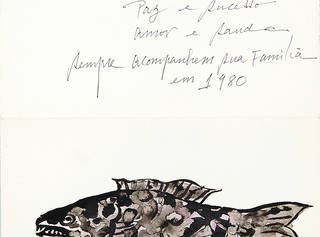 Paz e sucesso
amor e saude
sempre acompanhem sua Familia
em 1980